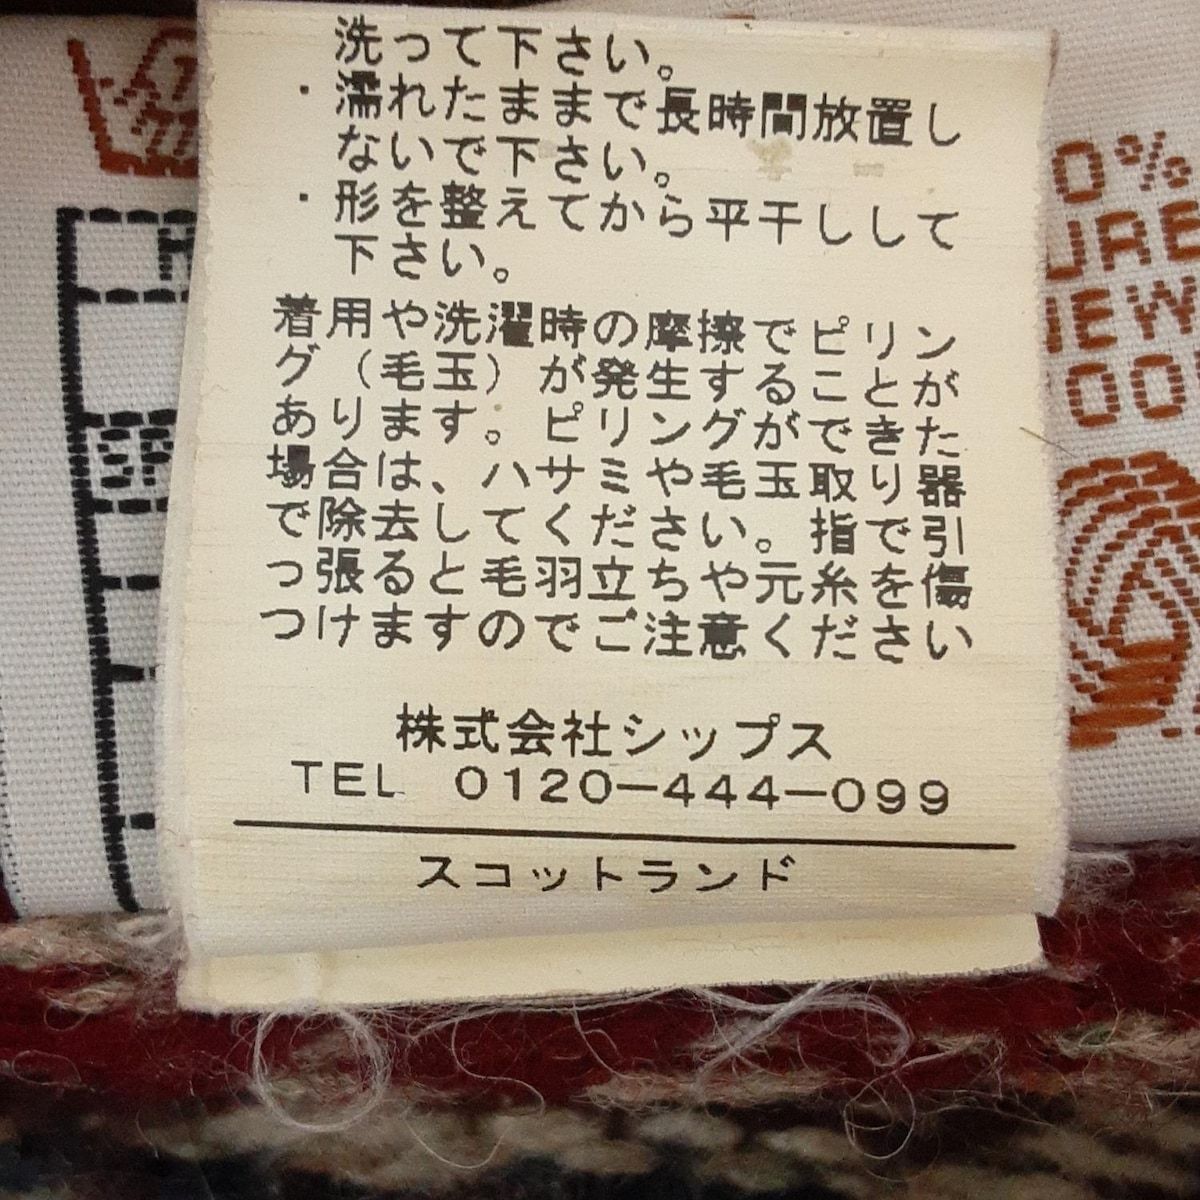 洗って下さい。
・濡れたままで長時間放置し
ないで下さい。
・形を整えてから平干しして
下さい。
着用や洗濯時の摩擦でピリン
グ（毛玉）が発生することが
あります。ピリングができた
場合は、ハサミや毛玉取り器
で除去してください。指で引
っ張ると毛羽立ちや元糸を傷
つけますのでご注意ください
株式会社シップス
TEL 0120-444-099
スコットランド
0%
URE
EW
OO